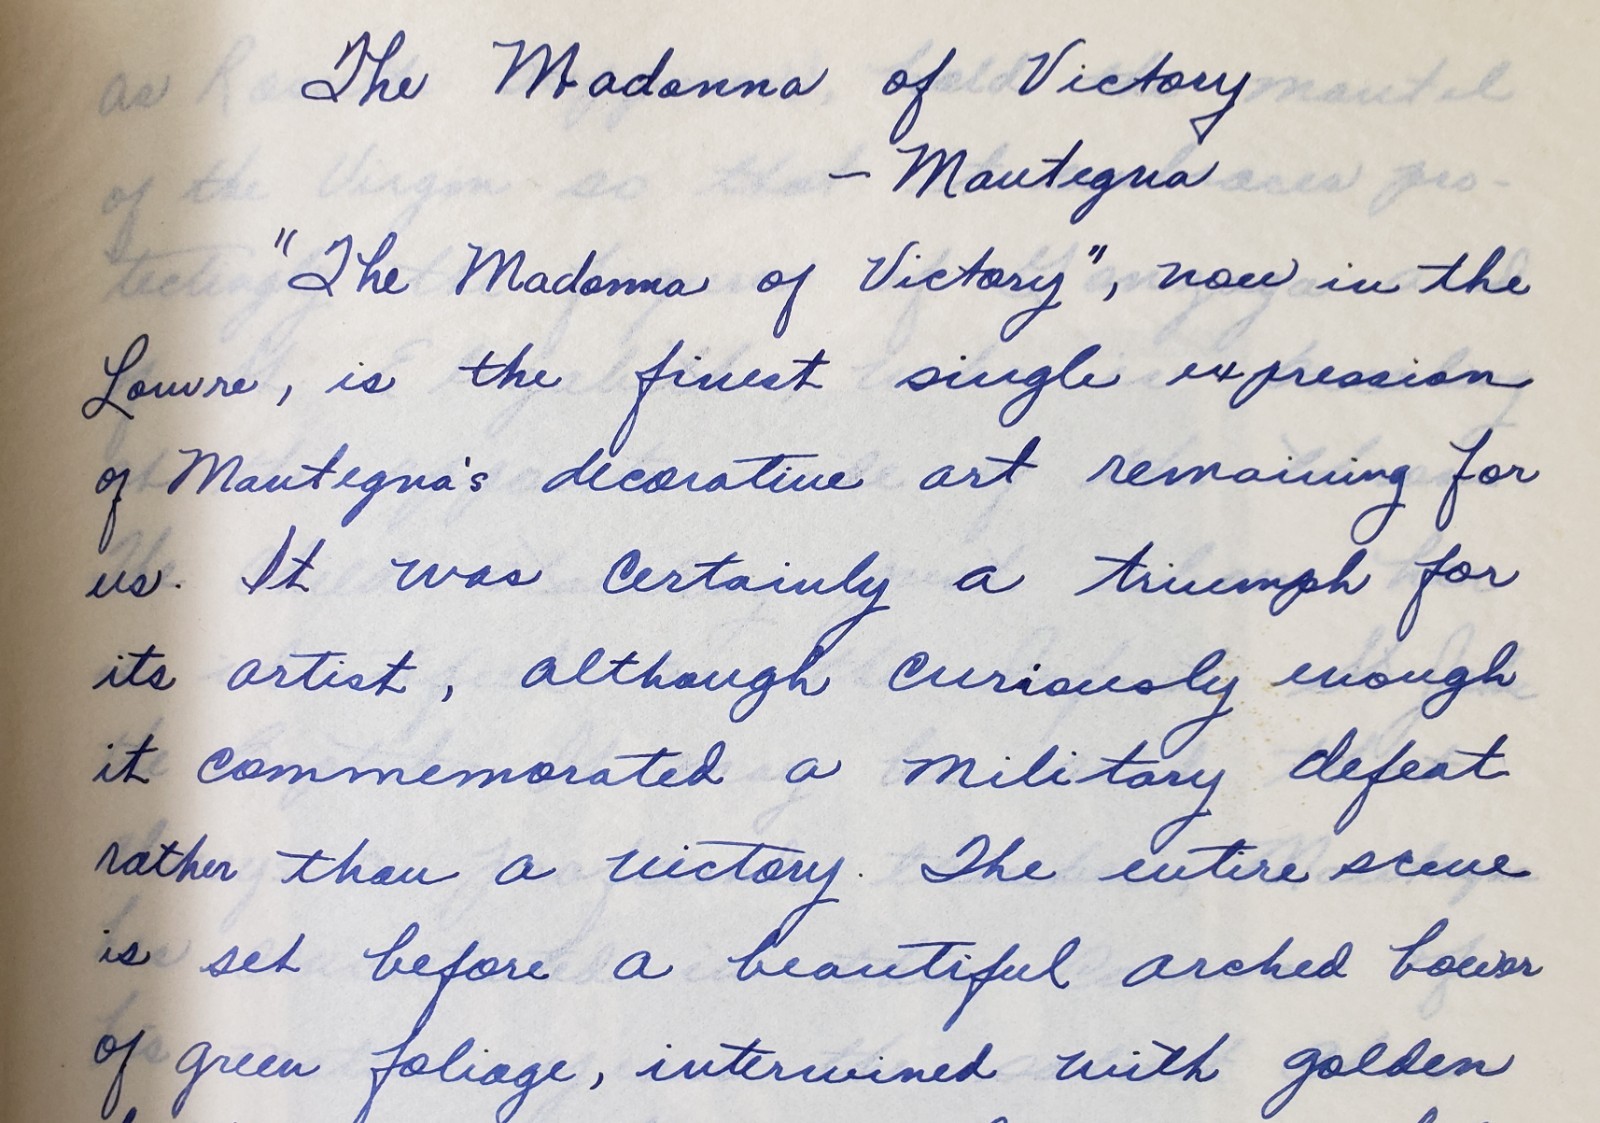 The Madonna of Victory
— Mantegna
"The Madonna of Victory", now in the
Louvre, is the finest single expression
of Mantegna's decorative art remaining for
us. It was certainly a triumph for
its artist, although curiously enough
it commemorated a military defeat
rather than a victory. The entire scene
is set before a beautiful arched bower
of green foliage, interwined with golden